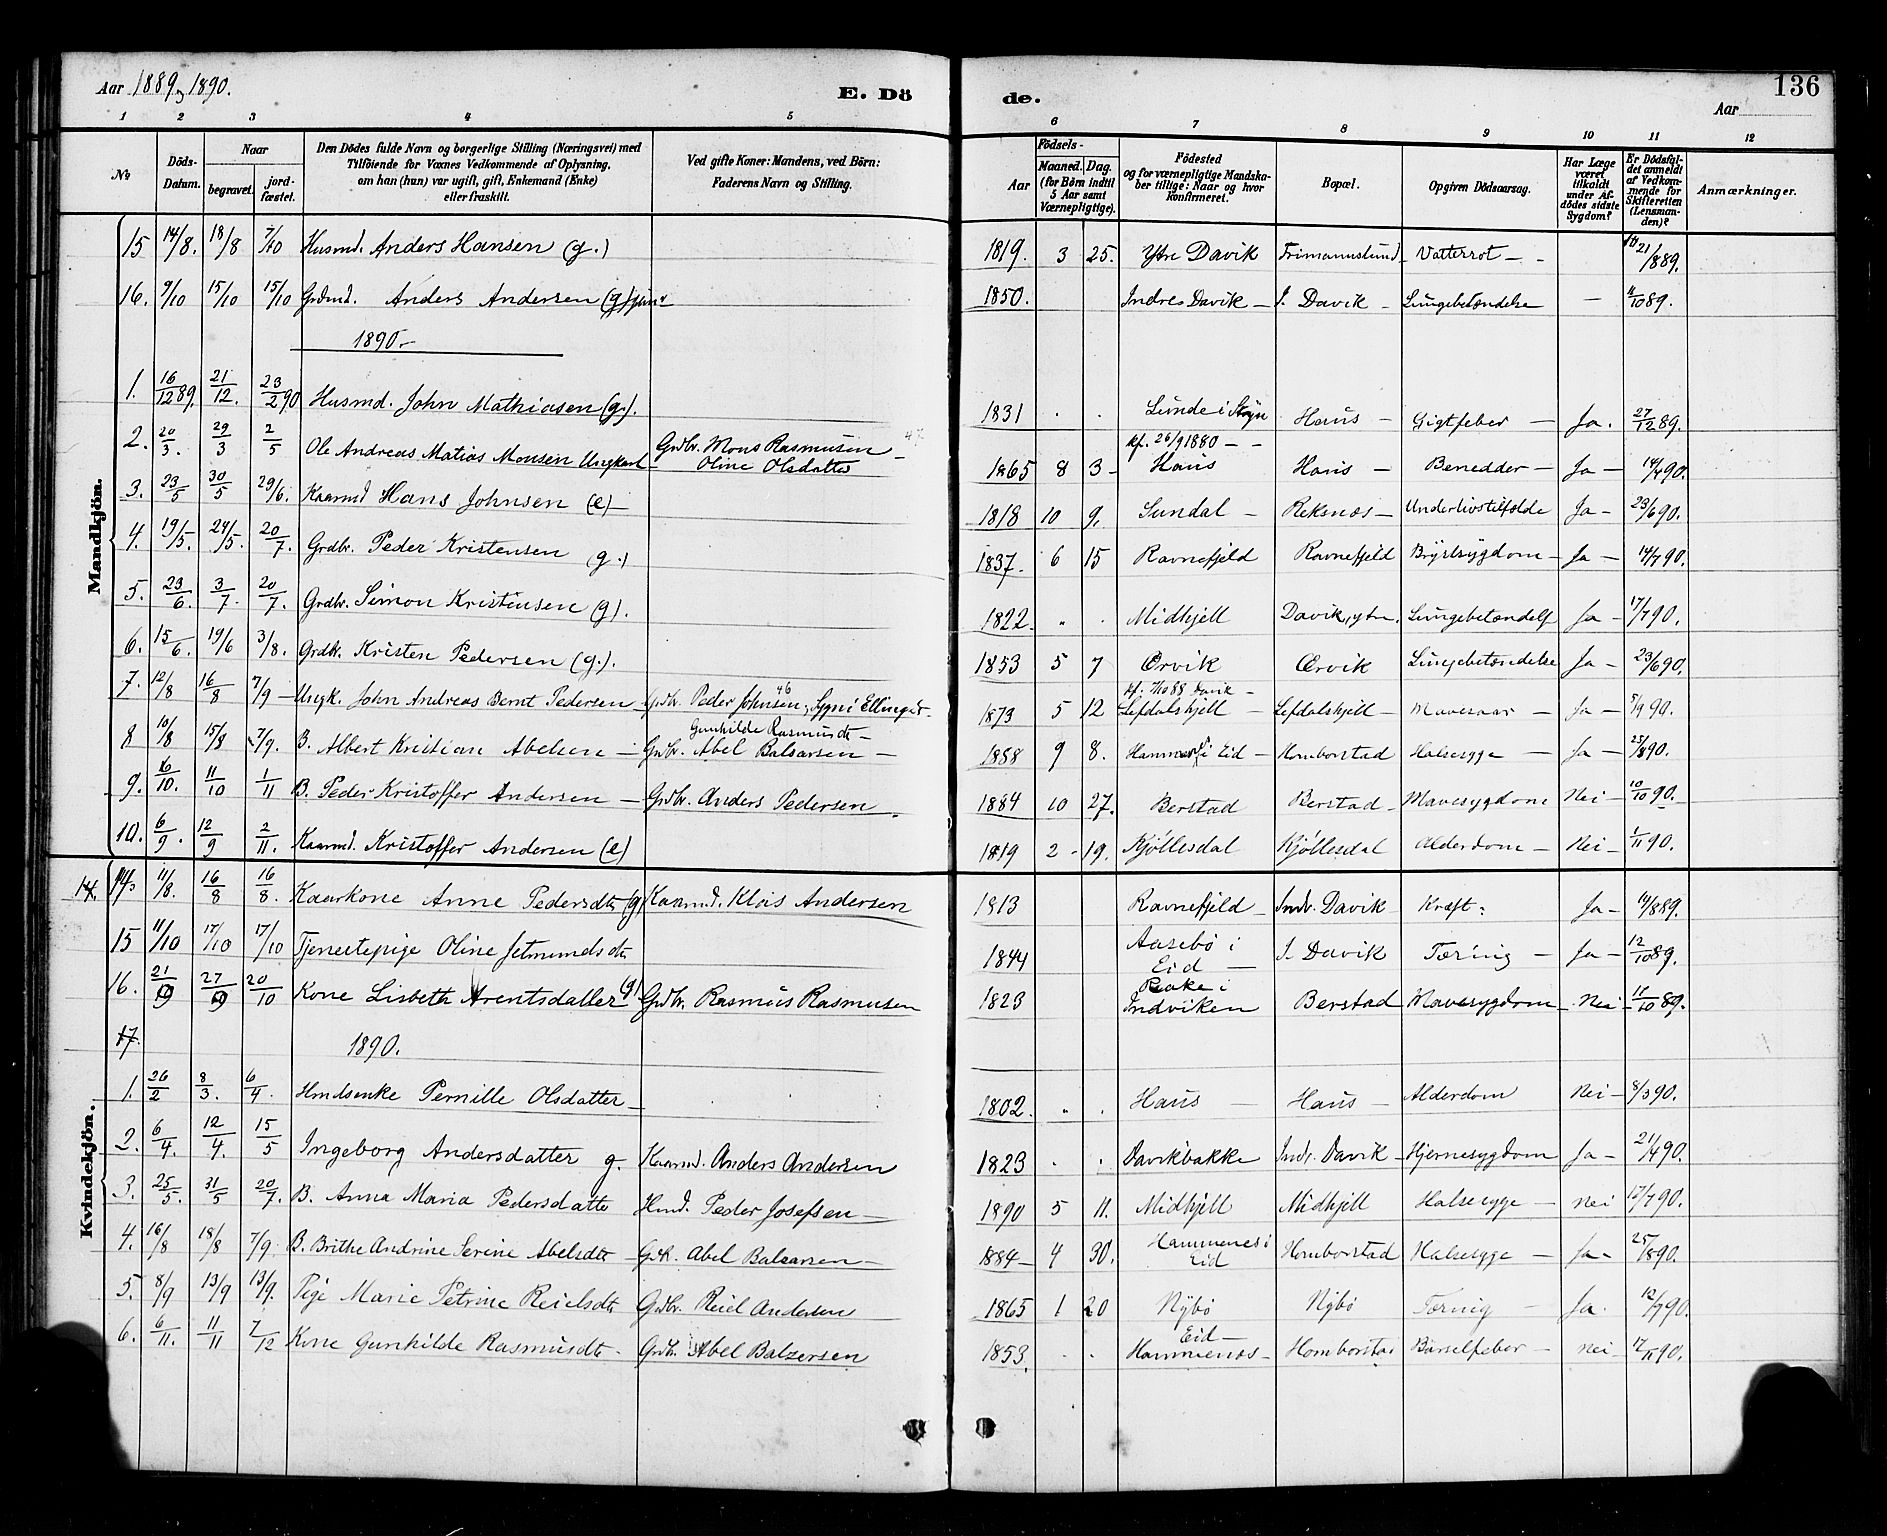 Aar 1889 og 1890.
E. Dö
de.
Aar
136
1 2 3 4 5 6 7 8 9 10 11 12
№
Döds-Datum.
Naar
begravet.
jord-fæstet.
Den Dödes fulde Navn og borgerlige Stilling (Næringsvei) med
Tilföiende for Voxnes Vedkommende af Oplysning,
om han (hun) var ugift, gift, Enkemand (Enke)
eller fraskilt.
Ved gifte Koner: Mandens, ved Börn:
Faderens Navn og Stilling.
Födsels-
Aar
Maaned. Dag.
(for Börn indtil
5 Aar samt
Værnepligtige).
Födested
og for værnepligtige Mandska-
ber tillige: Naar og hvor
konfirmeret.
Bopæl.
Opgiven Dödsaarsag.
Har Læge
været
tilkaldt
under Af-
dödes sidste
Sygdom?
Er Dödsfal-
det anmeldt
af Vedkom-
mende for
Skifteretten
(Lensman-
den)?
Anmærkninger.
Mandkjön.
15 14/8. 18/8 7/10 Husmd. Anders Hansen (g.) 1819. 3 25. Ytre Davik Frimannslund Vattersot - - 21/889.
16. 9/10 15/10 15/10 Grdmd. Anders Andersen (g) 1850. Indre Davik - I. Davik - Lungebetændelse - 11/1089.
1890.
1. 16/1289. 21/12. 23/290 Husmd. John Mathiasen (g.). 1831 . . Lunde i Stryn Haus - Gigtfeber - Ja. 27/1289.
2. 20/3. 29/3 2/5 Ole Andreas Matias Monsen Ungkarl Grdbr. Mons Rasmusen - Oline Olsdatter 47 1865 8 3 - kf. 26/9 1880 - - Haus Haus - Benedder - Ja - 14/490.
3. 23/5 30/5 29/6. Kaarmd Hans Johnsen (e) - 1818 10 9. Sundal - Reksnæs - Underlivstilfælde Ja - 23/690.
4. 19/5. 24/5. 20/7. Grdbr. Peder Kristensen (g.) 1837. 6 15 Ravnefjeld Ravnefjeld Brystsygdom - Ja - 14/790.
5. 23/6. 3/7. 20/7. Grdbr. Simon Kristensen (g). 1822. " . Midhjell Davik, ytre. Lungebetændels Ja - 17/790.
6. 15/6. 19/6 3/8. Grdbr. Kristen Pedersen (g.). 1853 5 7 Ørvik Ørvik Lungebetændelse Ja - 23/690.
7. 12/8 16/8 7/9 - Ungk. John Andreas Bernt Pedersen - Grdbr. Peder Johnsen, 46 1873 5 12 Lefdalshjell - Lefdalshjell - Mavesaar - Ja - 5/990.
8 10/8 15/8 7/9. B. Albert Kristian Abelsen - Gunhilde Rasmusdt - Grdbr. Abel Balsarsen - 1888 9 8. Hammenes i Eid - Homborstad Halsesyge - Ja - 25/890.
9. 16/10. 11/10 1/11 B. Peder Kristoffer Andersen - Grdbr. Anders Pedersen. 1884 10 27. Berstad Berstad - Mavesygdom Nei - 10/1090.
10. 6/9. 12/9 2/11. Kaarmd. Kristoffer Andersen (e) 1819 2 - 19. Kjöllesdal Kjöllesdal Alderdom - Nei - 1/1190.
Kvindekjön.
14. 11/8. 16/8 16/8. Kaarkone Anne Pedersdtr (g) Kaarmd. Klois Andersen 1813 Ravnefjeld - Indr. Davik - Kræft. Ja - 14/889.
15 11/10 17/10 17/10 Tjenestepige Oline Jetmundsdtr 1844 Aasebö i Eid - I. Davik Tæring - Ja - 12/1089.
16. 21/9 27/9 20/10 Kone Lisbeth Arentsdatter (g) Grdbr. Rasmus Rasmusen 1823 Rake i Indviken Berstad Mavesygdom - Nei - 11/1089.
17. 1890.
1. 26/2 8/3. 6/4. Hmdsenke Pernille Olsdatter - 1802. " . Haus Haus - Alderdom Nei - 8/390.
2. 6/4. 12/4. 15/5 Ingeborg Andersdatter g. Kaarmd. Anders Andersen 1823 . . Davikbakke Indr. Davik - Hjernesygdom Ja - 21/490.
3. 25/5. 31/5 20/7. B. Anna Maria Pedersdatter Hmd. Peder Josefsen - 1890 5 11. Midhjell Midhjell Halsesyge - Nei 17/790.
4. 16/8 18/8 7/9. B. Brithe Andrine Serine Abelsdtr - Grdbr. Abel Balsarsen - 1884 - 4 30. Hammenes i Eid Homborstad Halsesyge - Ja - 25/890.
5. 8/9 13/9 13/9. Pige Marie Petrine Reielsdtr Grdbr. Reiel Andersen 1865 1 20 Nybö Nybö Tæring - Ja. 12/790.
6. 6/11. 11/11 7/12 Kone Gunhilde Rasmusdtr - Grdbr. Abel Balzersen 1853. . . Eid - Hammenes - Homborstad Barselfeber - Nei - 12/1190.